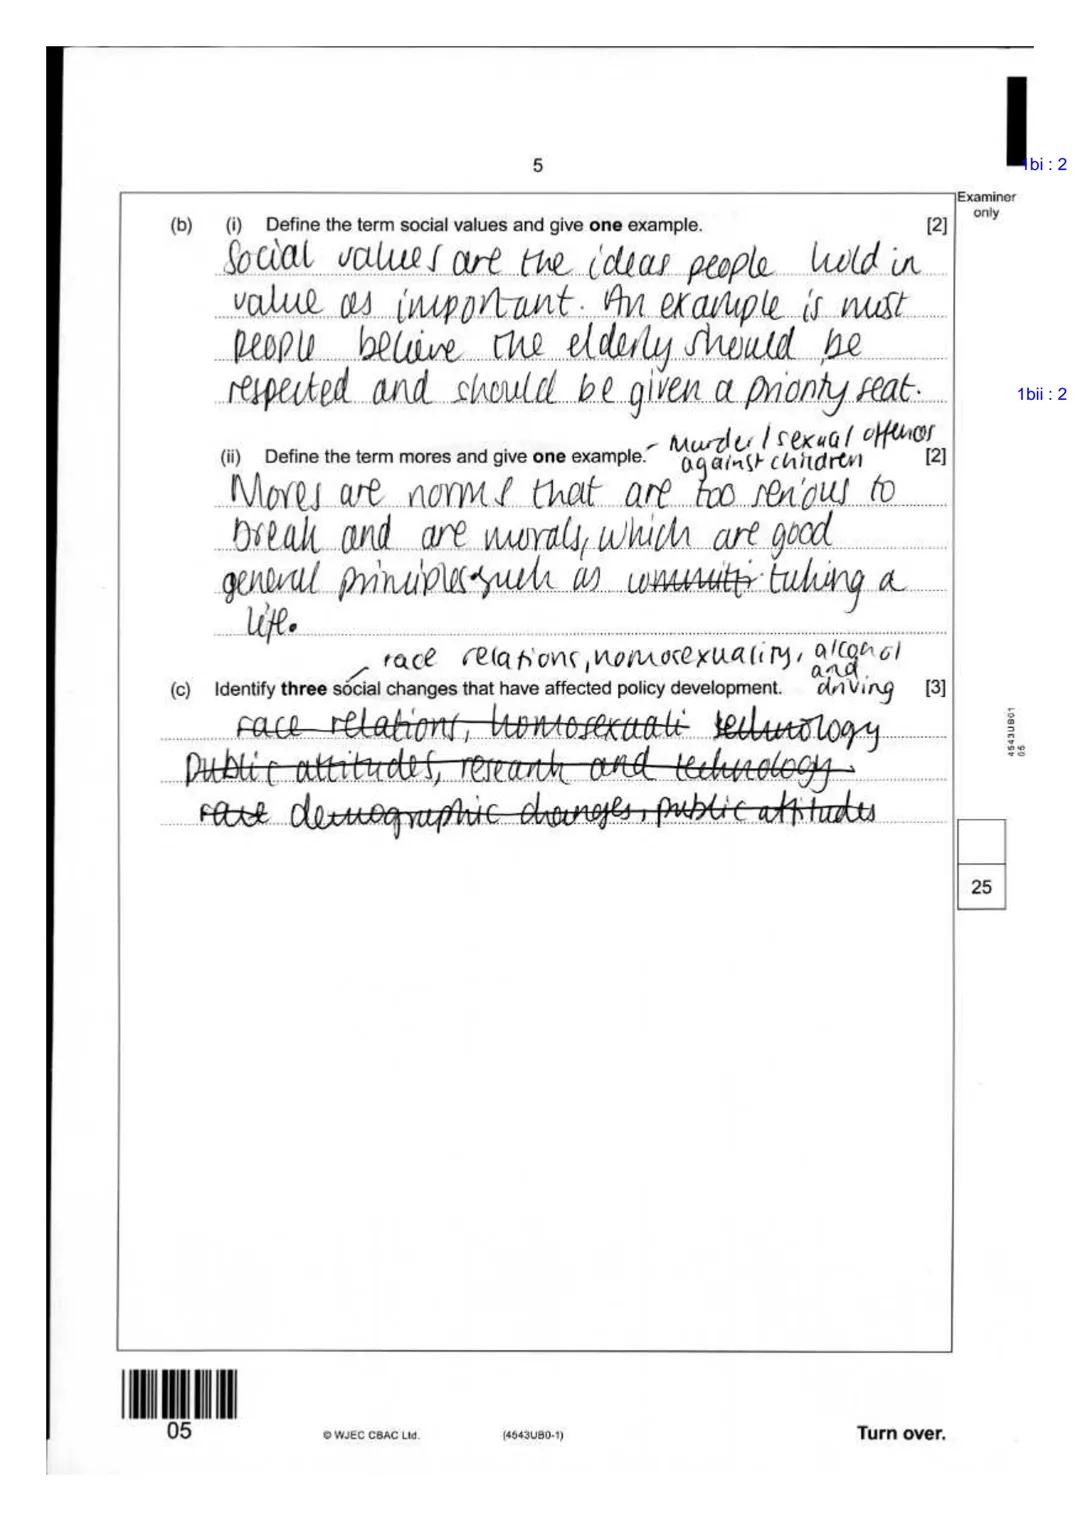 5
1bi : 2
Examiner only
(b) (i) Define the term social values and give one example. [2]
Social values are the ideas people hold in
value as important. An example is most
people believe the elderly should be
respected and should be given a priority seat.
1bii : 2
- murder / sexual offences
against children
(ii) Define the term mores and give one example. [2]
Mores are norms that are too serious to
break and are morals, which are good
general principles such as committi taking a
life.
race relations, homosexuality, alcohol
and
driving
(c) Identify three social changes that have affected policy development. [3]
race relations, homosexuali technology
Public attitudes, research and technology
rare demographic changes, public attitudes
4543UB01
05
25
05
© WJEC CBAC Ltd.
(4543UB0-1)
Turn over.